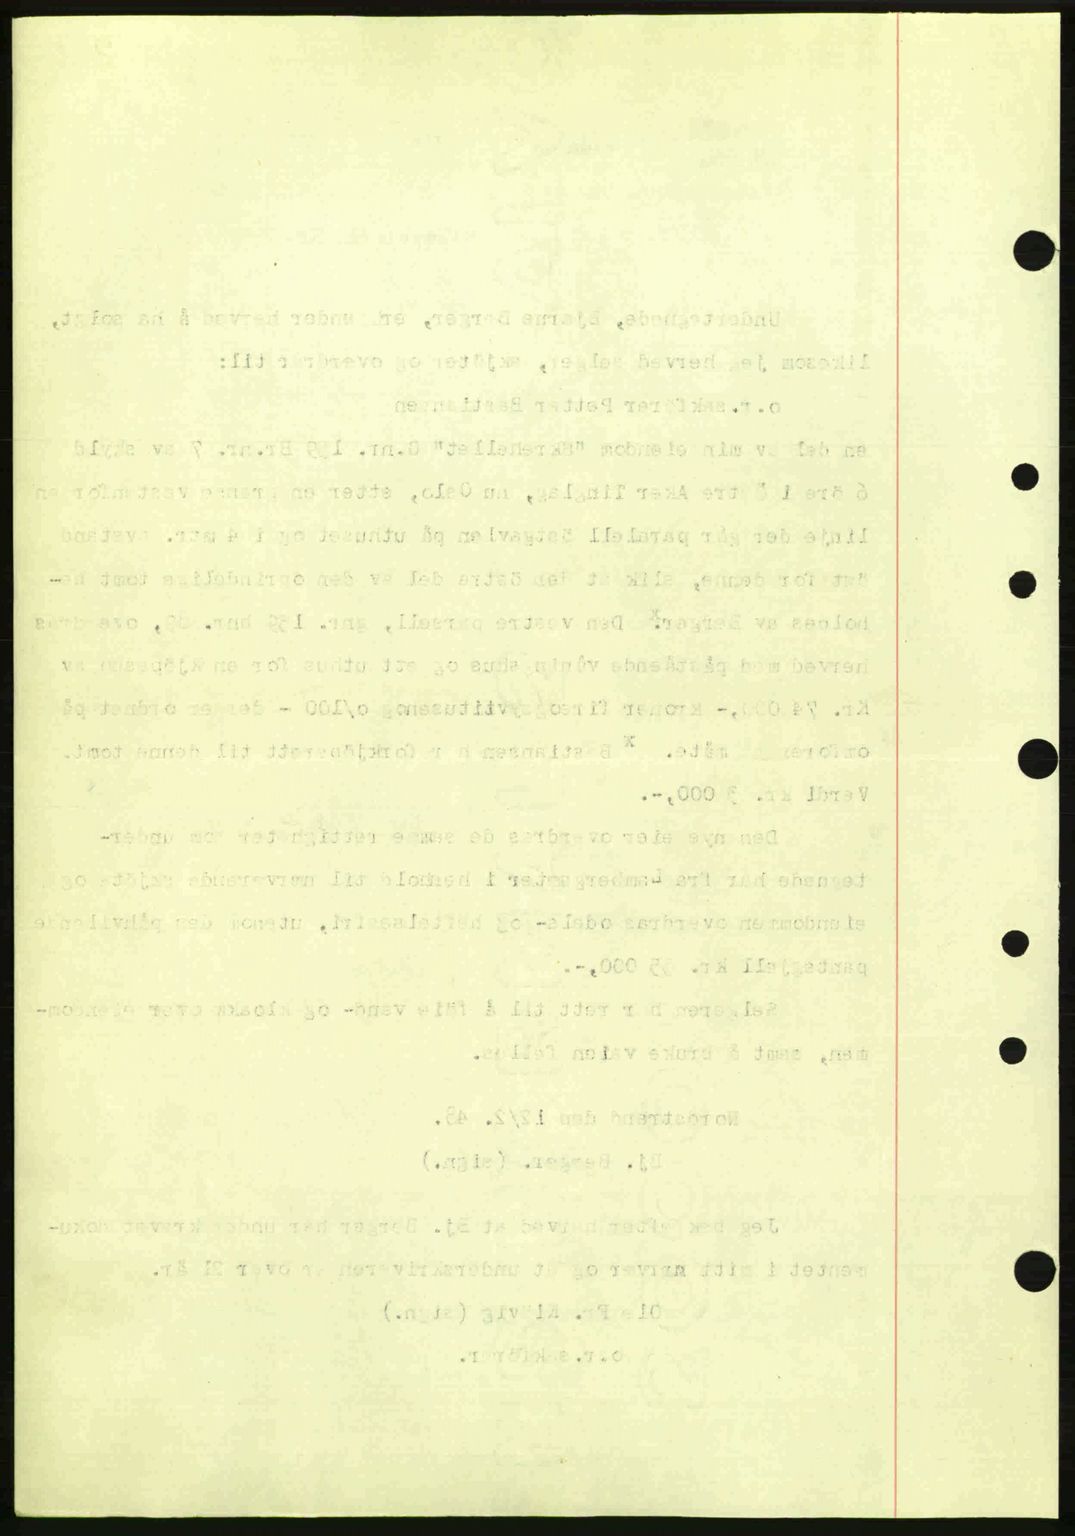 Undertegnede, Bjarne Berger, erkjender herved å ha solgt,
likesom jeg herved selger, skjöter og overdrar til:
o.r.sakförer Petter Bastiansen
en del av min eiendom G.nr. 159 Br.nr. 7 av skyld
6 öre i Östre Aker Tinglag, nu Oslo, etter en grense vestenfor en
linje der går paralell östgavlen på uthuset og i 4 mtr. avstand
öst for denne, slik at den östre del av den oprindelige tomt be-
holdes av Berger.x Den vestre parsell, gnr. 159 bnr. overdras
herved med påstående våningshus og ett uthus for en kjöpesum av
Kr. 74 000,- kroner fireogsyvtitusenog o/100 - der er ordnet på
omforenet måte. x Bastiansen har forkjöpsrett til denne tomt.
Verdi kr. 3 000,-.
Den nye eier overdras de samme rettigheter som under-
tegnede har fra i henhold til nærværende skjöte og
eiendommen overdras odels- og heftelsesfri, utenom den påhvilende
pantegjell kr. 000,-.
Selgeren har rett til å före vand- og kloakk over eiendom-
men, samt å bruke veien felles.
Nordstrand den 12/2. 43.
Bj. Berger. (sign.)
Jeg bekrefter herved at Bj. Berger har underskrevet doku-
mentet i mitt nærvær og at underskriveren er over 21 år.
Ole Fr. (sign.)
o.r.sakförer.